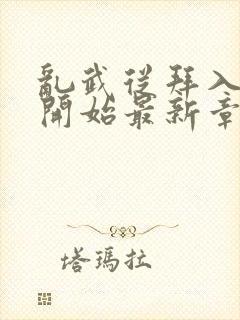 亂武從拜入
開始最新章
塔瑪拉